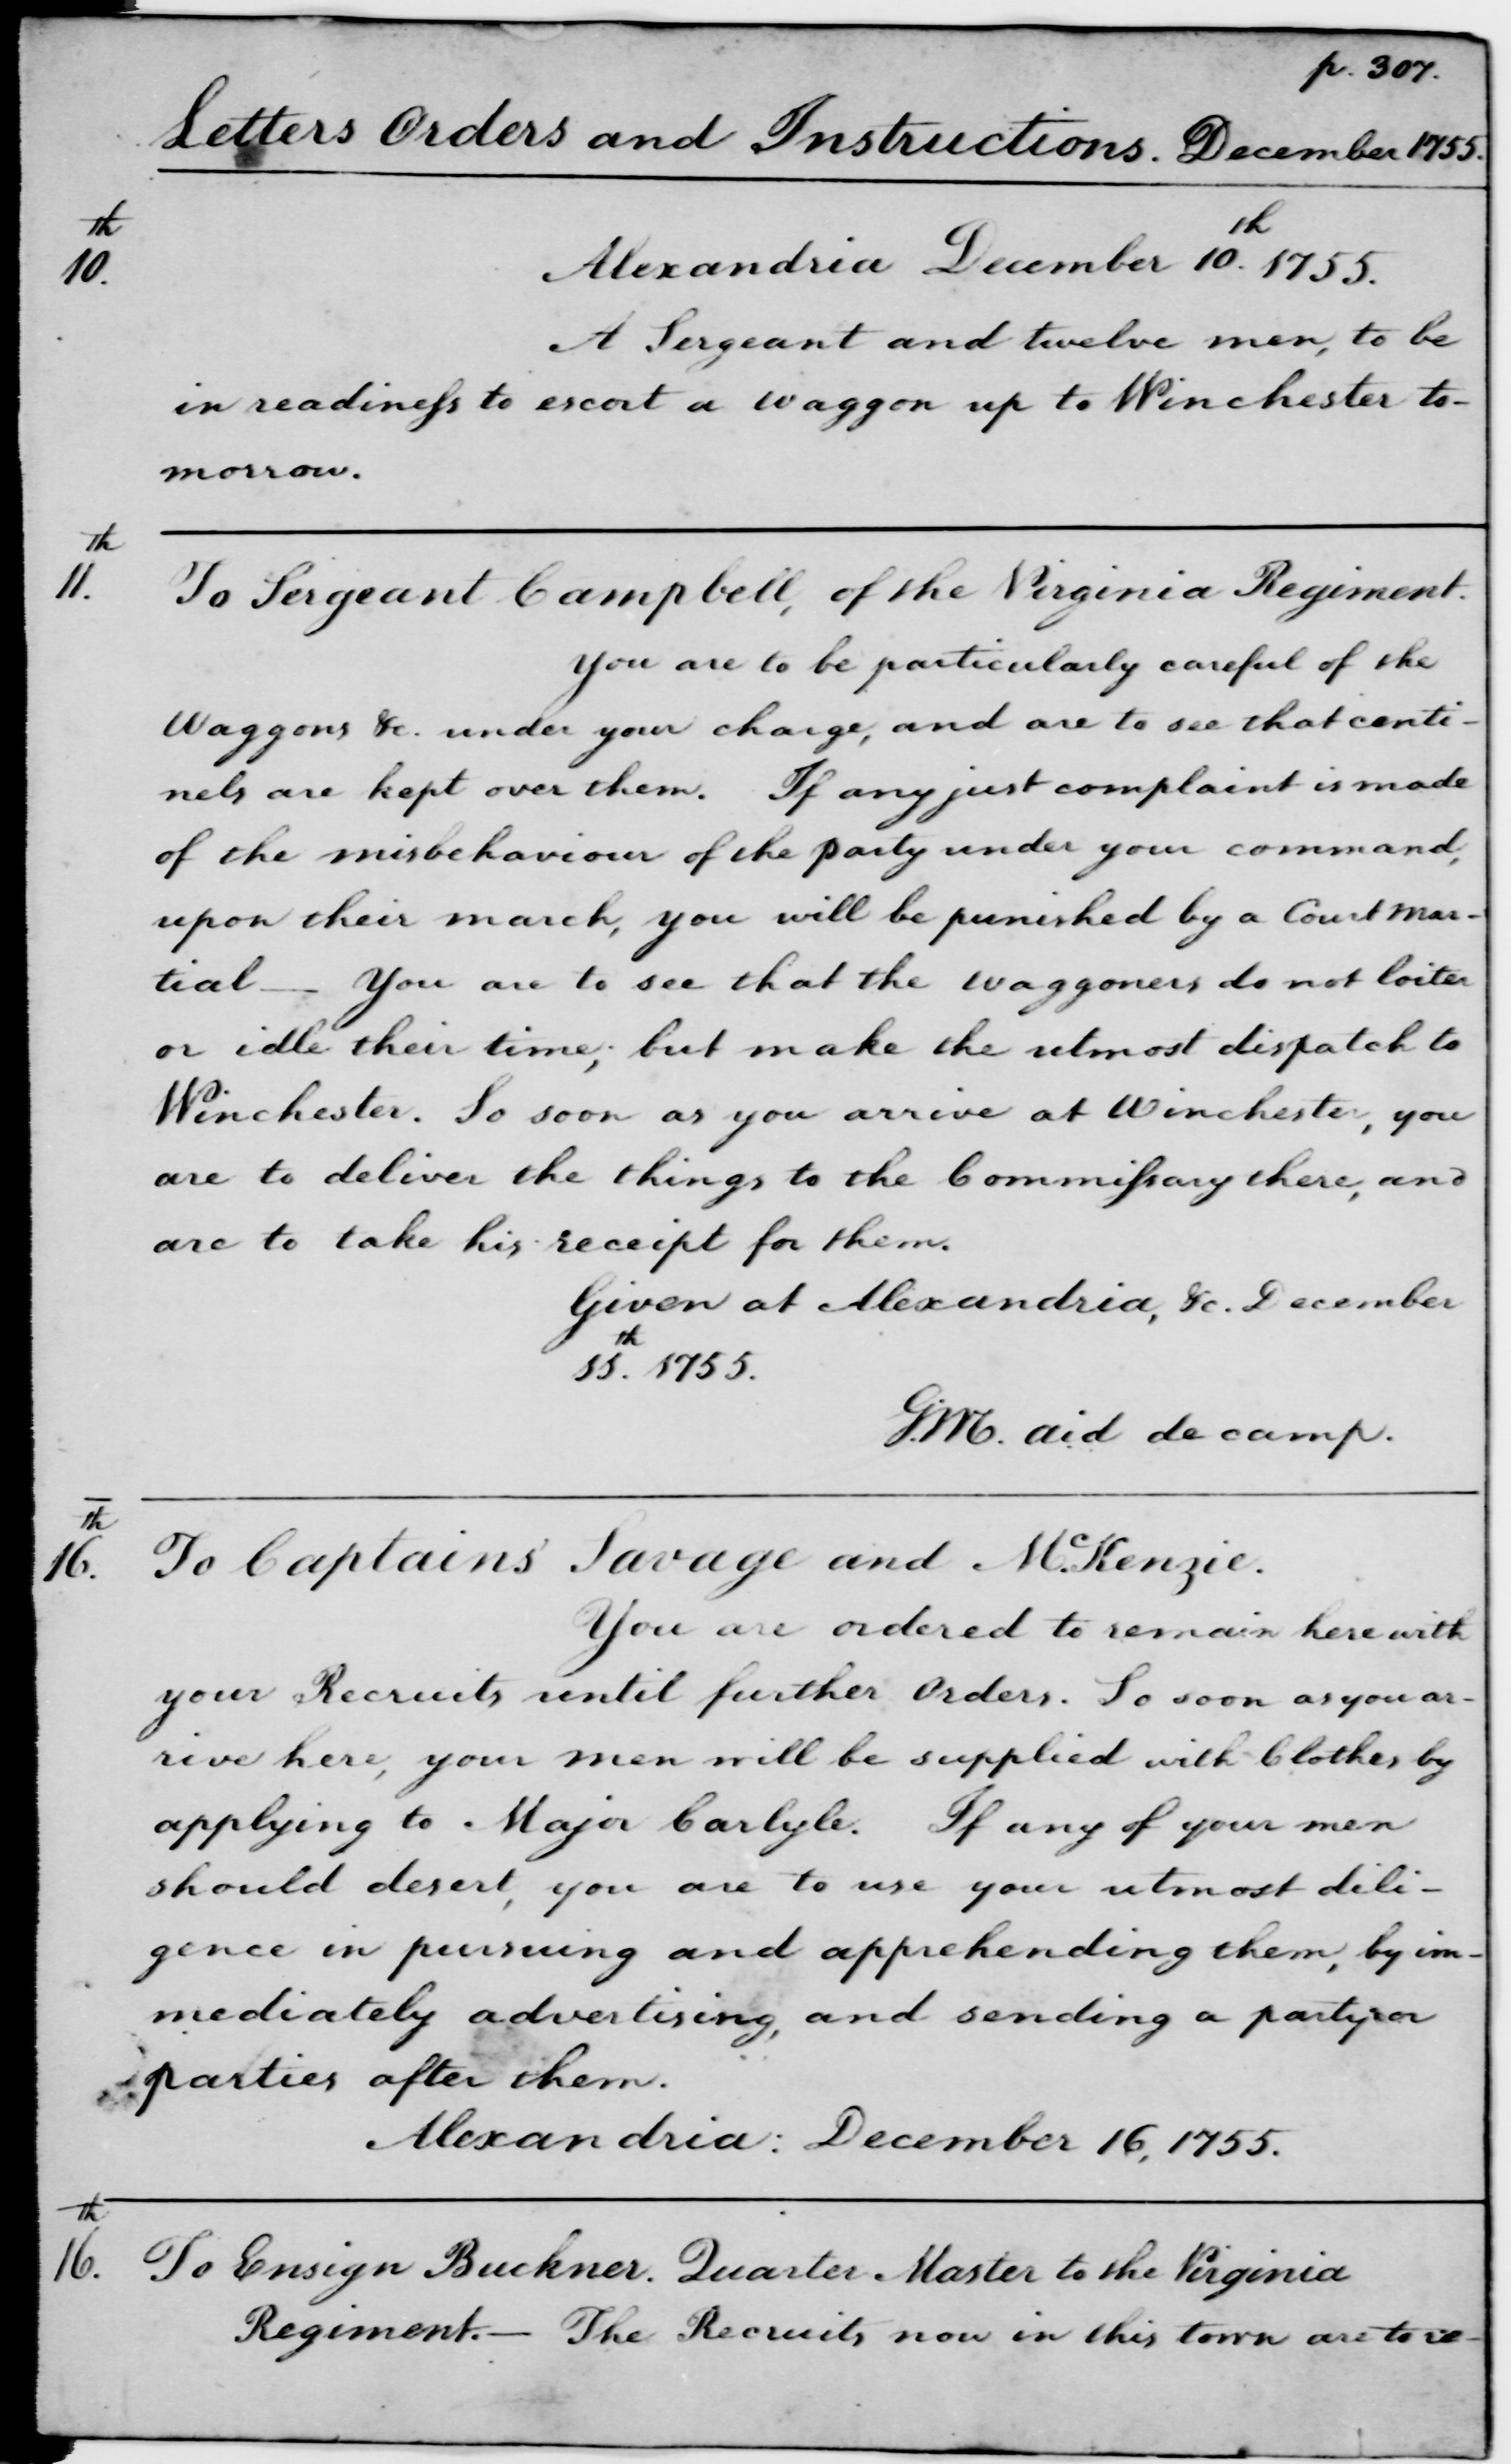 p. 307.
Letters Orders and Instructions. December 1755.
10.th
Alexandria December 10.th 1755.
A Sergeant and twelve men, to be
in readiness to escort a waggon up to Winchester to-
morrow.
11.th
To Sergeant Campbell, of the Virginia Regiment.
You are to be particularly careful of the
Waggons &c. under your charge, and are to see that centi-
nels are kept over them. If any just complaint is made
of the misbehaviour of the party under your command,
upon their march, you will be punished by a Court Mar-
tial — You are to see that the waggoners do not loiter
or idle their time; but make the utmost dispatch to
Winchester. So soon as you arrive at Winchester, you
are to deliver the things to the Commissary there, and
are to take his receipt for them.
Given at Alexandria, &c. December
11.th 1755.
G.M. aid de camp.
16.th
To Captains Savage and McKenzie.
You are ordered to remain here with
your Recruits until further Orders. So soon as you ar-
rive here, your men will be supplied with Clothes by
applying to Major Carlyle. If any of your men
should desert, you are to use your utmost dili-
gence in pursuing and apprehending them, by im-
mediately advertising, and sending a party or
parties after them.
Alexandria: December 16, 1755.
16.th
To Ensign Buckner. Quarter Master to the Virginia
Regiment. — The Recruits now in this town are to re-